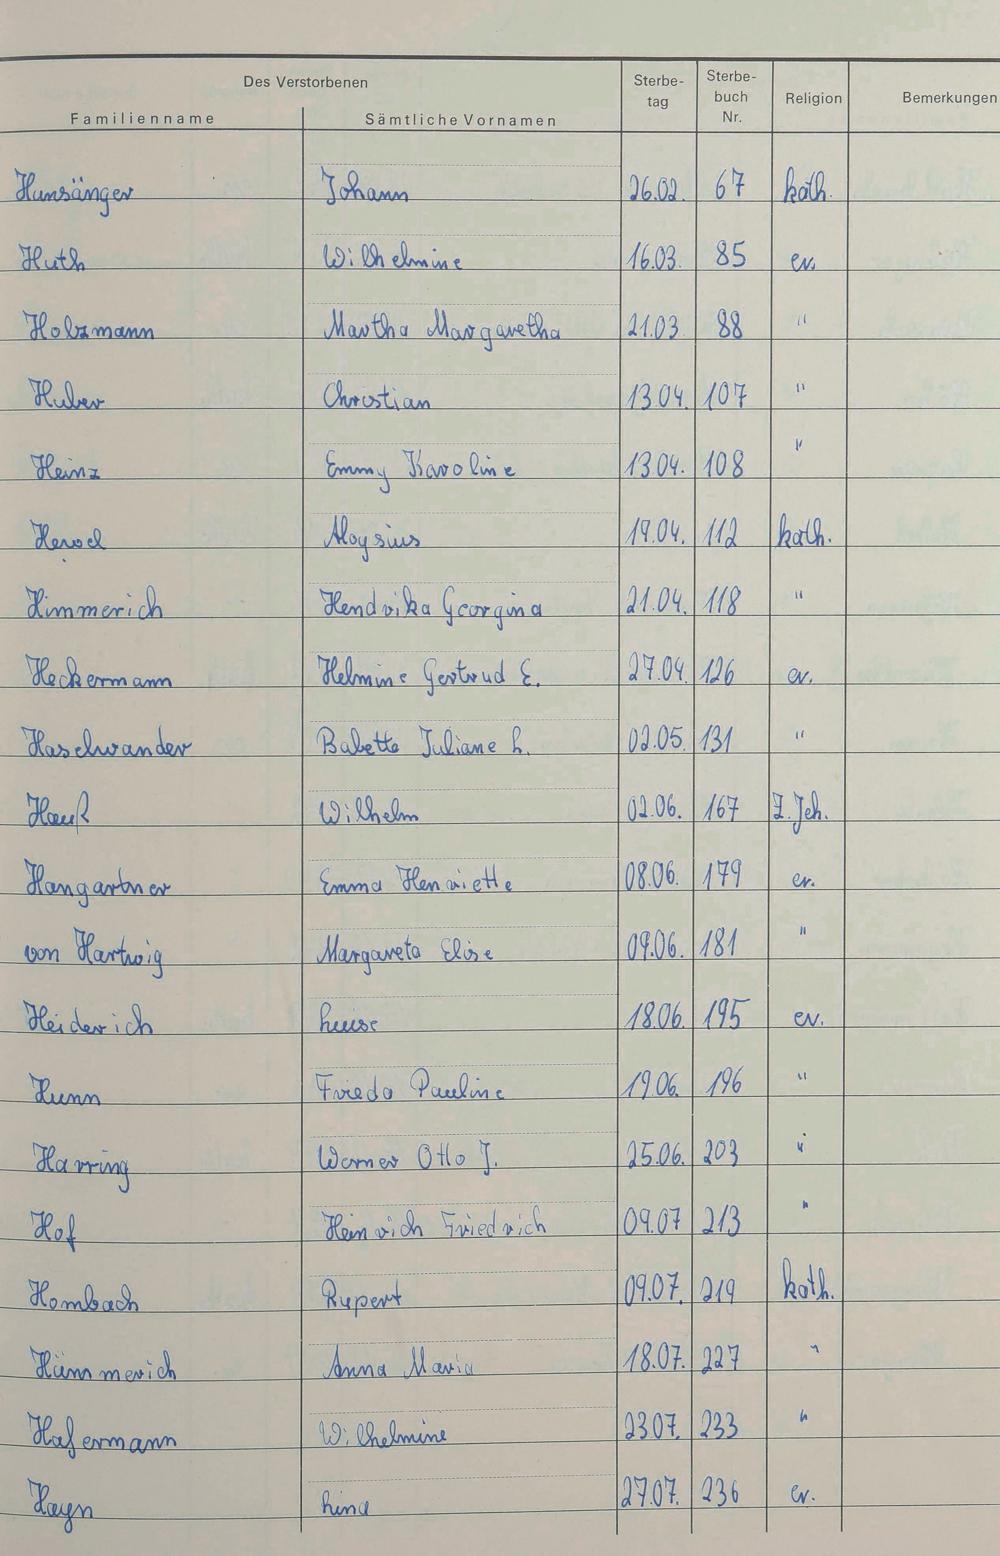 Des Verstorbenen
Familienname Sämtliche Vornamen Sterbe-tag Sterbe-buch Nr. Religion Bemerkungen
Hunsänger Johann 26.02. 67 kath.
Huth Wilhelmine 16.03. 85 ev.
Holzmann Martha Margaretha 21.03. 88 "
Huber Christian 13.04. 107 "
Heinz Emmy Karoline 13.04. 108 "
Herod Aloysius 19.04. 112 kath.
Himmerich Hendrika Georgina 21.04. 118 "
Heckermann Helmine Gertrud E. 27.04. 126 ev.
Haschwander Babette Juliane L. 02.05. 131 "
Hauß Wilhelm 02.06. 167 Z. Jeh.
Hangartner Emma Henriette 08.06. 179 ev.
von Hartwig Margareta Elise 09.06. 181 "
Heiderich Luise 18.06. 195 ev.
Hunn Frieda Pauline 19.06. 196 "
Harring Werner Otto J. 25.06. 203 "
Hof Heinrich Friedrich 09.07 213 "
Hombach Rupert 09.07. 219 kath.
Hümmerich Anna Maria 18.07. 227 "
Hafermann Wilhelmine 23.07. 233 "
Hayn Lina 27.07. 236 ev.